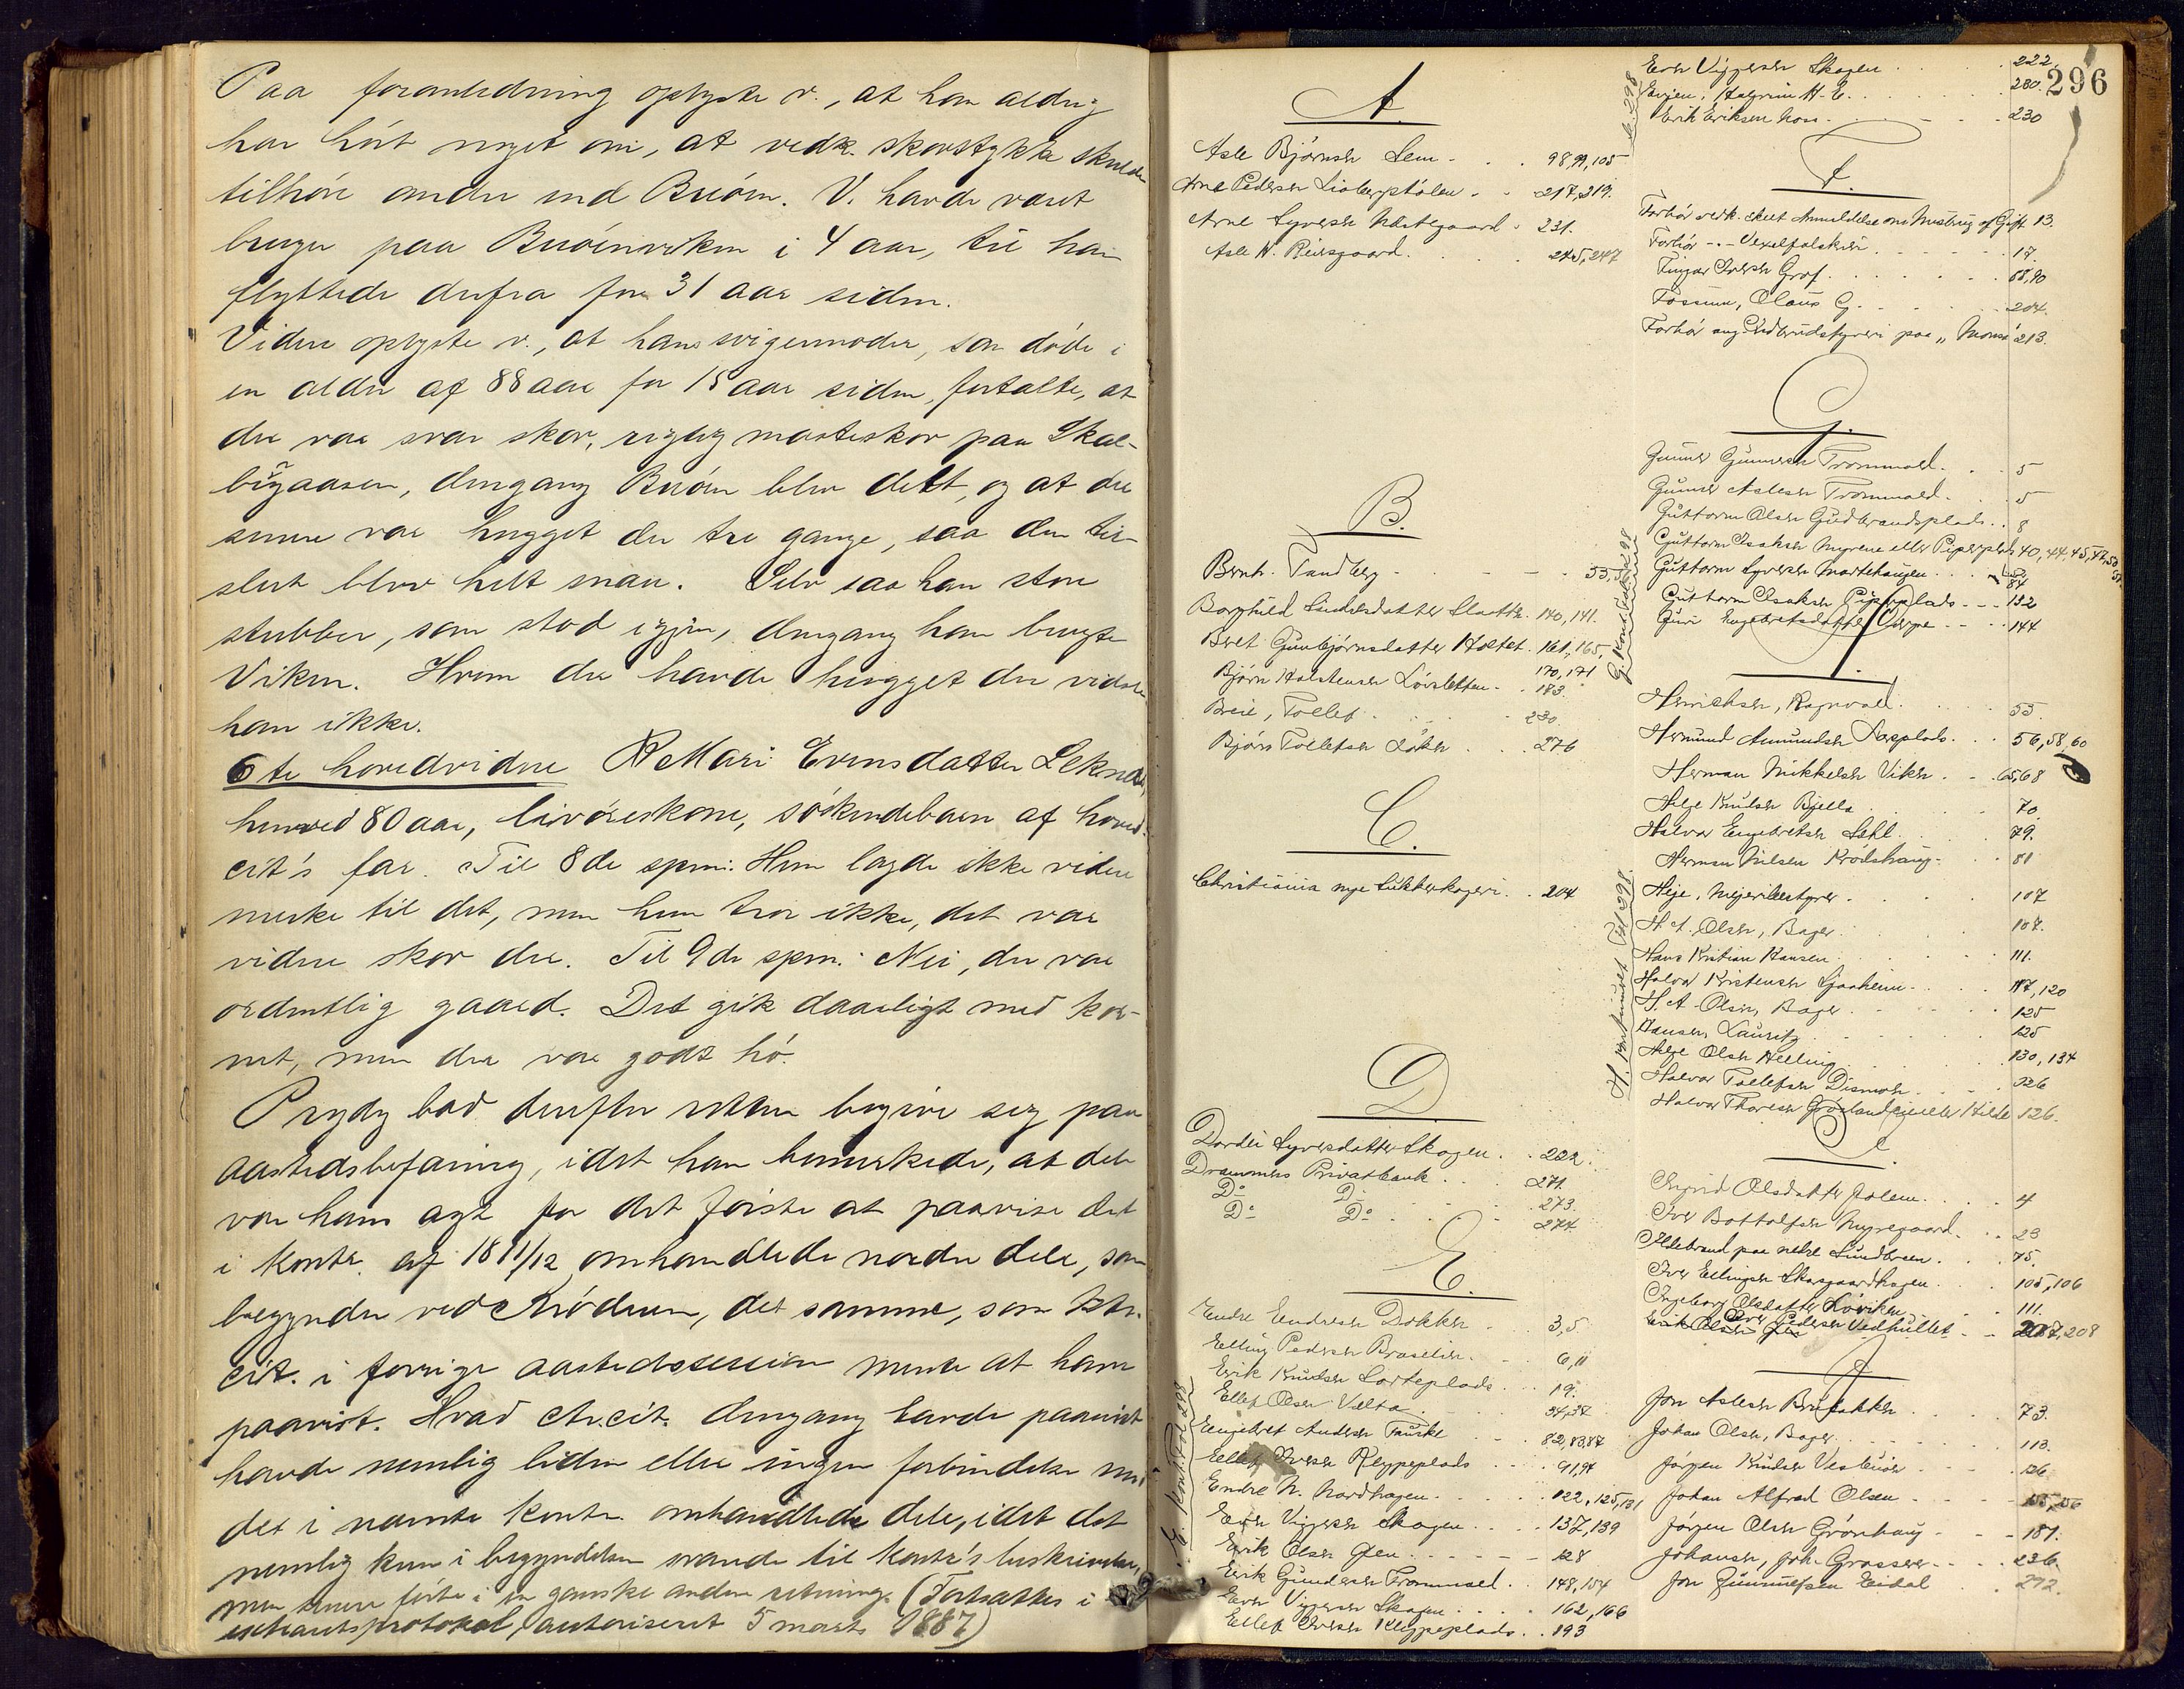 Paa foranledning oplyste v., at han aldrig
har hört noget om, at vedk. skovstykke skulde
tilhöre andre end Buöen. V. havde været
bruger paa Buöenviken i 4 aar, til han
flyttede derfra for 31 aar siden.
Videre oplyste v., at hans svigermoder, som döde i
en alder af 88 aar for 15 aar siden, fortalte, at
der var svær skov, rigtig masteskov paa Skal-
bigaasen, dengang Buöen blev delt, og at der
senere var hugget der tre gange, saa den til-
slut blev helt snau. Selv saa han store
stubber, som stod igjen, dengang han brugte
Viken. Hvem der havde hugget der vidste
han ikke.
6te hovedvidne Mari Evensdatter Leknes,
henved 80 aar, livöreskone, söskendebarn af hoved-
cit's far. Til 8de spm: Hun lagde ikke videre
merke til det, men hun tror ikke, det var
videre skov der. Til 9de spm: Nei, der var
ordentlig gaard. Det gik daarligt med kor-
net, men der var godt hö.
Prydz bad derefter retten begive seg paa
aastedsbefaring, idet han bemerkede, at det
var hans agt for det förste at paavise det
i kontr. af 1811/12 omhandlede nordre dele, som
begynder ved Kröderen, det samme, som ktr.
cit. i forrige aastedssession mente at have
paavist. Hvad ctr.cit. dengang havde paavist
havde nemlig liden eller ingen forbindelse med
det i nævnte kontr. omhandlede dele, idet det
nemlig kun i begyndelsen svarede til kontr's beskrivelse,
men senere förte i en ganske anden retning. (Fortsættes i
extraretsprotokol, autoriseret 5 marts 1887)
A.
Asle Björnsen Lem - 98, 99, 105
Arne Pedersen Lioberptölen - 217, 219.
Arne Syversen Nøstegaard - 231.
Asle N. Reiersgaard. 245, 247
B.
Bernh. Tandberg - 53,
Borghild Lindersdatter Slaatte. 140, 141.
Beret Gunbjörnsdatter Holtet. 161, 165,
170, 171
Björn Halstensen Lövsletten - 183.
Breie, Tollef. 230.
Björn Tollefsen Löken 276
C.
Christiania nye Sukkerkogeri. 204
D
Dordei Syversdatter Skogen. 222.
Drammens Privatbank. 271.
Do Do 273.
Do Do 274.
E.
Endre Endresen Dokken 3, 5
Elling Pedersen Braselien. 6, 11
Erik Knudsen Sorteplads 19.
Ellef Olsen Velta 34, 37
Engebret Andersen Fauske 82, 83, 87
Ellef Iversen Kleppeplads 91, 94
Endre N. Nordhagen. 122, 125, 131
Even Viggersen Skogen. 137, 139
Erik Olsen Gjen. 128
Erik Gundersen Trommald. 148, 154
Even Viggersen Skogen 162, 166
Ellef Iversen Kleppeplads. 193
E. Kont. Fol 298
E. 298
Even Viggersen Skogen 222.
Evjen, Halgrim H. E. 280.
Erik Eriksen Moss. 230
296
F.
Forhör vedk. skeet Anmeldelse om Misbrug af Gift 13.
Forhör - - Vexelfalskeri 17.
Fingar Iversen Grof. 88, 90
Fossum, Olaus G. 204.
Forhör ang. Ildebrudstyveri paa "Momo" 213.
G.
Gunner Gunnersen Trommald. 5
Gunner Aslesen Trommald. 5
Guttorm Olsen Gudbrandsplads. 8
Guttorm Isaksen Myrene eller Piperplads 40, 44, 45, 47, 50
Guttorm Syversen Mortehaugen. 84
Guttorm Isaksen Piperplads - 132
Guri Engebretsdatter Garpe 144
H.
Henrichsen, Ragnvald. 55.
Hermund Amundsen Aasplads. 56, 58, 60
Herman Mikkelsen Viken. 65, 68
Helge Knudsen Bjella 70.
Halvor Engebretsen Sehl. 79.
Herman Nilsen Krödshaug. 81
Heje, Meieribestyrer. 107
H. A. Olsen, Bager. 107.
Hans Kristian Hansen. 111.
Halvor Kristensen Sjaaheim. 117, 120
H. A. Olsen, Bager 125
Hansen, Lauritz 125
Helge Olsen Helling 130, 134
Halvor Tollefsen Dismoen 126
Halvor Thoresen Gröslandseie eller Hilde 126.
H. Kontinueret Fol 298.
I
Ingrid Olsdatter Jolem. 4
Iver Bottolfsen Myregaard. 23
Ildebrand paa nedre Sundbreen. 75.
Iver Ellingsen Skarsgaardhagen. 105, 106
Ingeborg Olsdatter Löviken 111.
Iver Pedersen Vedhullet - 207, 208
J
Jon Aslesen Brufaten 73.
Johan Olsen, Bager 113.
Jörgen Knudsen Vesbuöen 126
Johan Alfred Olsen 155, 156
Jörgen Olsen Grönhaug - 187.
Johansen, Joh. Grosserer 236
Jon Gunnulfsen Eidal 272.